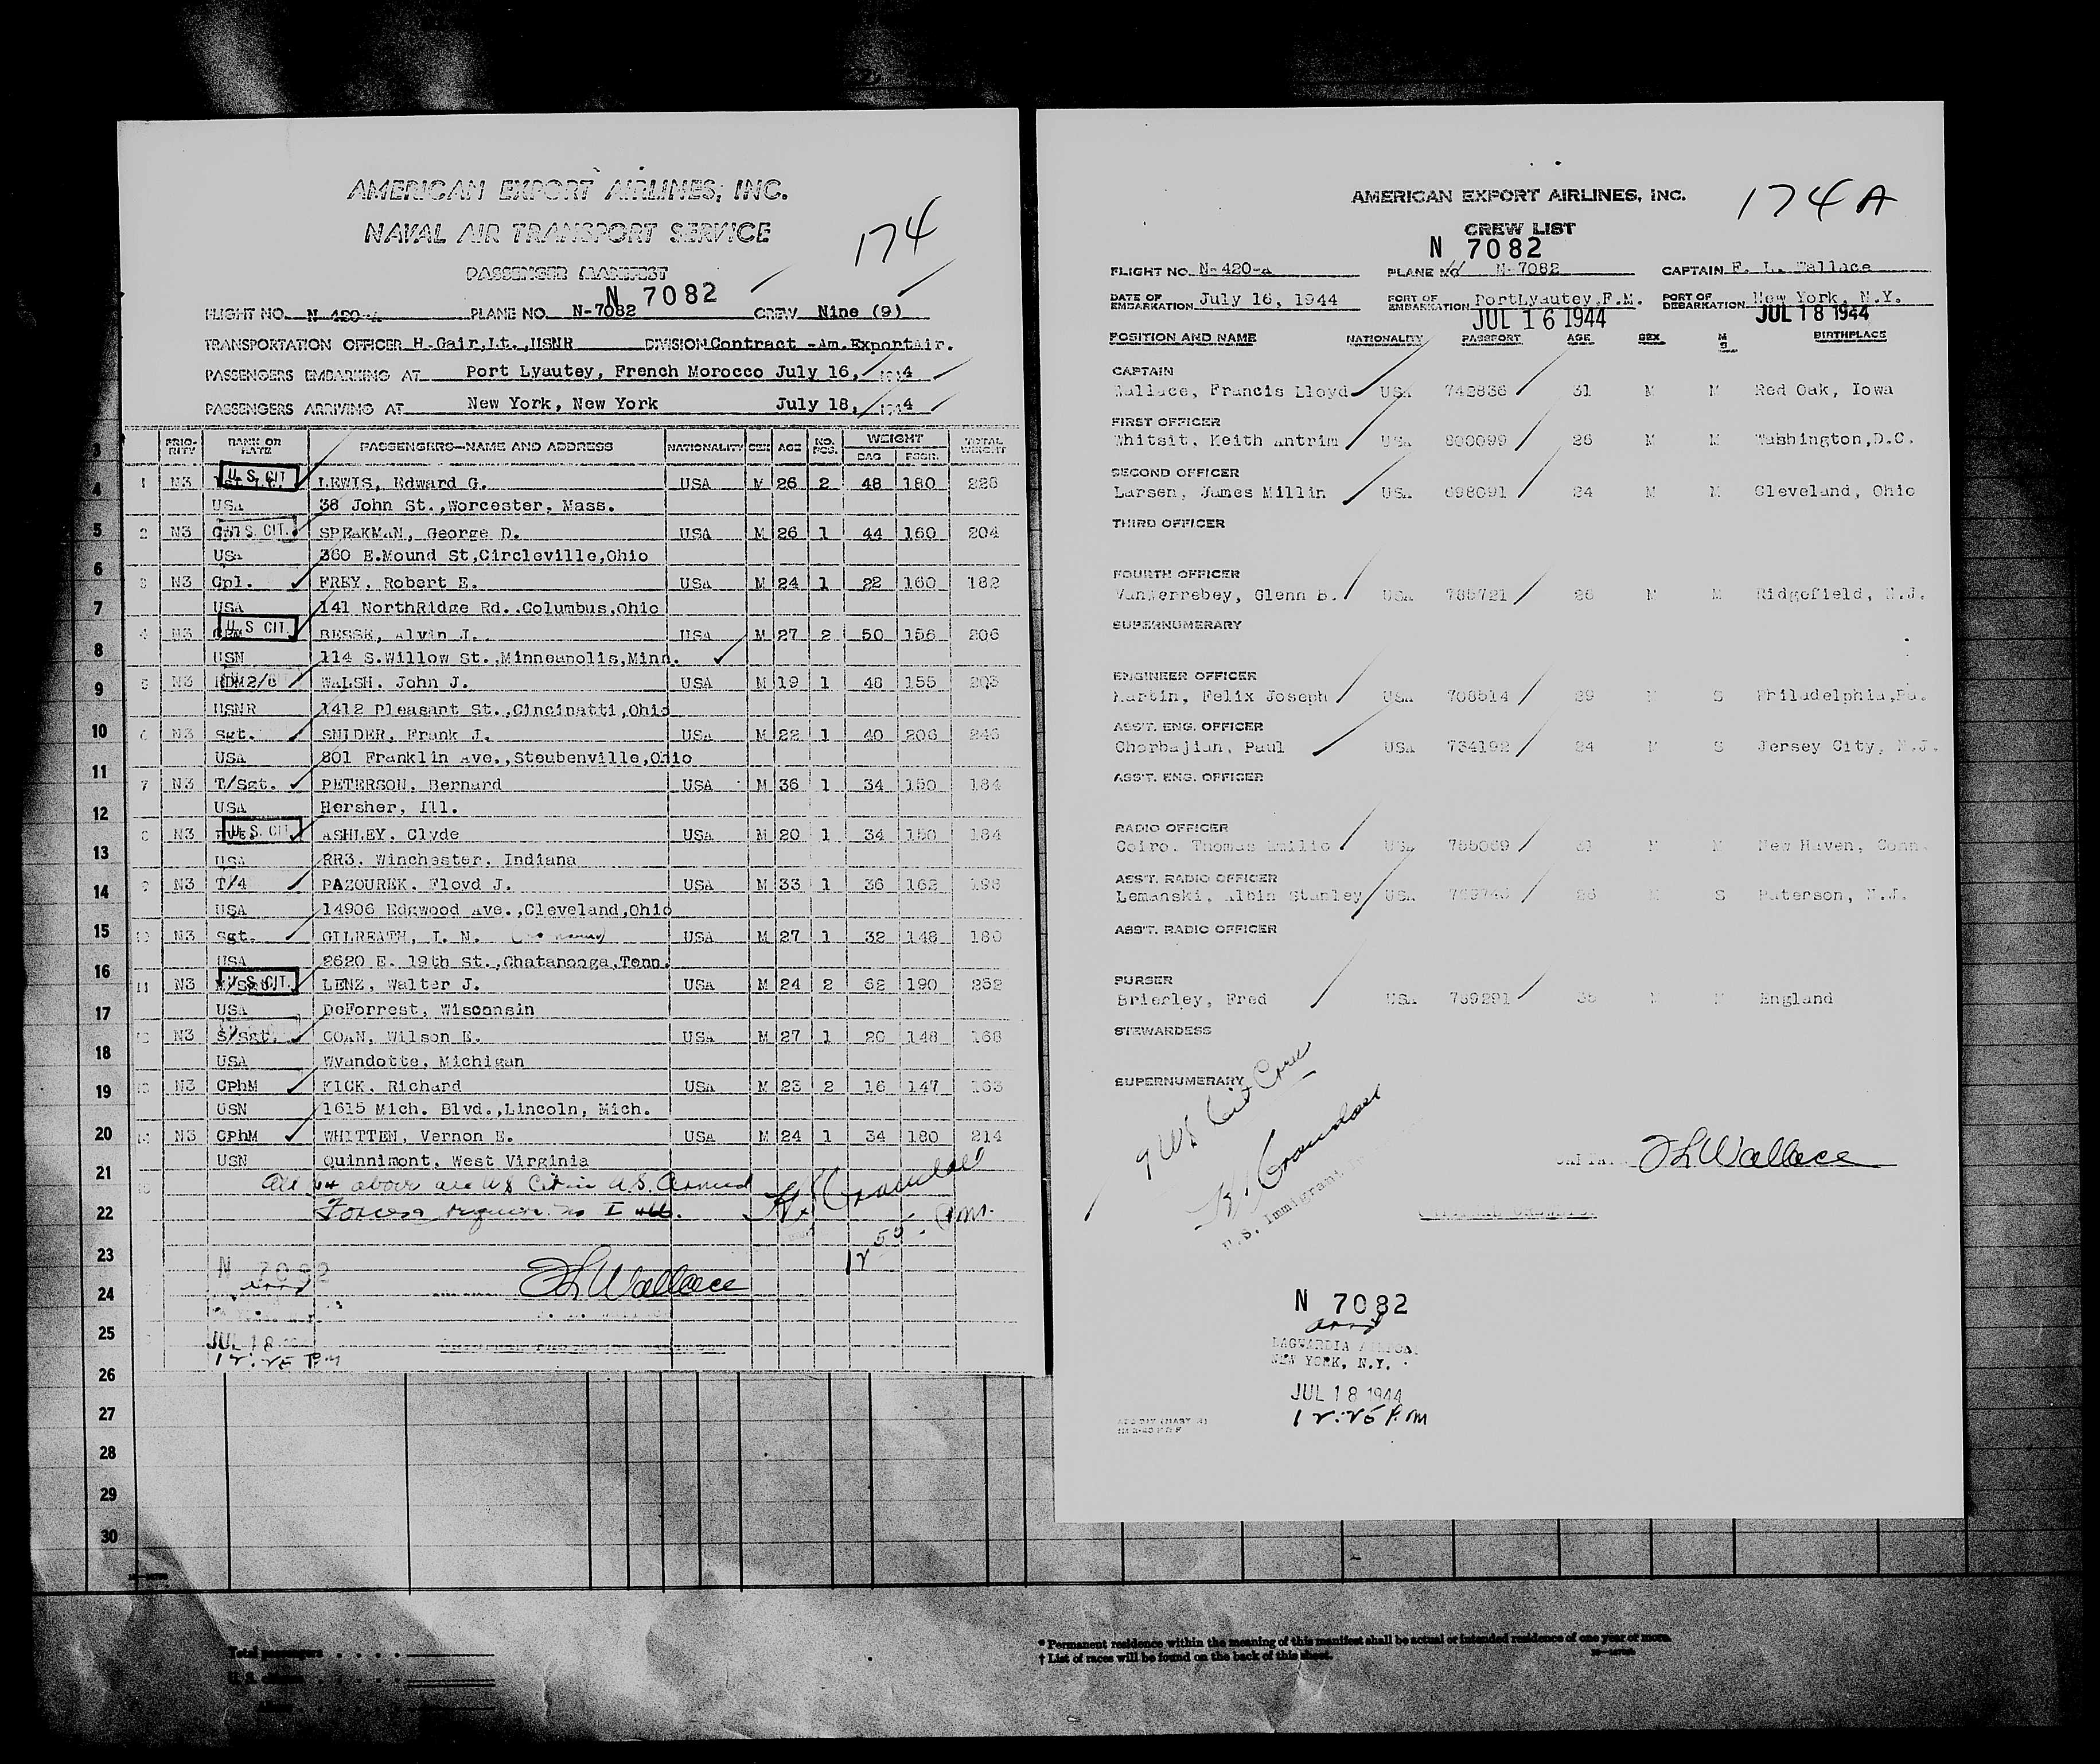 AMERICAN EXPORT AIRLINES, INC.
NAVAL AIR TRANSPORT SERVICE
174
PASSENGER MANIFEST
N 7082
FLIGHT NO. N-420-A PLANE NO. N-7082 CREW Nine (9)
TRANSPORTATION OFFICER H.Gair,Lt.,USNR DIVISION Contract -Am.ExportAir.
PASSENGERS EMBARKING AT Port Lyautey, French Morocco July 16, 1944
PASSENGERS ARRIVING AT New York, New York July 18, 1944
PRIO-RITY RANK OR RATE PASSENGERS—NAME AND ADDRESS NATIONALITY SEX AGE NO. PCS. WEIGHT BAG PSGR. TOTAL WEIGHT
1 N3 U.S. CIT. LEWIS, Edward G. USA M 26 2 48 180 228
USA 38 John St.,Worcester, Mass.
2 N3 Cpl U.S. CIT. SPEAKMAN, George D. USA M 26 1 44 160 204
USA 360 E.Mound St,Circleville,Ohio
3 N3 Cpl. FREY, Robert E. USA M 24 1 22 160 182
USA 141 NorthRidge Rd.,Columbus,Ohio
4 N3 U.S CIT. BESSE, Alvin J. USA M 27 2 50 156 206
USN 114 S.Willow St.,Minneapolis,Minn.
5 N3 RDM2/c WALSH, John J. USA M 19 1 48 155 203
USNR 1412 Pleasant St.,Cincinatti,Ohio
6 N3 Sgt. SNIDER, Frank J. USA M 22 1 40 206 246
USA 801 Franklin Ave.,Steubenville,Ohio
7 N3 T/Sgt. PETERSON, Bernard USA M 36 1 34 150 184
USA Hersher, Ill.
8 N3 U.S. CIT. ASHLEY, Clyde USA M 20 1 34 150 184
USA RR3, Winchester, Indiana
9 N3 T/4 PAZOUREK, Floyd J. USA M 33 1 36 162 198
USA 14906 Edgwood Ave.,Cleveland,Ohio
10 N3 Sgt. GILREATH, I. N. USA M 27 1 32 148 180
USA 2620 E. 19th St.,Chatanooga,Tenn.
11 N3 U.S. CIT. LENZ, Walter J. USA M 24 2 62 190 252
USA DeForrest, Wisconsin
12 N3 S/Sgt. COAN, Wilson E. USA M 27 1 20 148 168
USA Wyandotte, Michigan
13 N3 CPhM KICK, Richard USA M 23 2 16 147 163
USN 1615 Mich. Blvd.,Lincoln, Mich.
14 N3 CPhM WHITTEN, Vernon E. USA M 24 1 34 180 214
USN Quinnimont, West Virginia
All 14 above are US Cit in U.S. Armed
Forces
N 7082
F L Wallace
JUL 18
12:25 P.M
AMERICAN EXPORT AIRLINES, INC.
174 A
CREW LIST
N 7082
FLIGHT NO. N-420-A PLANE NO. N-7082 CAPTAIN F. L. Wallace
DATE OF EMBARKATION July 16, 1944 PORT OF EMBARKATION PortLyautey,F.M. PORT OF DEBARKATION New York, N.Y.
JUL 16 1944 JUL 18 1944
POSITION AND NAME NATIONALITY PASSPORT AGE SEX M S BIRTHPLACE
CAPTAIN
Wallace, Francis Lloyd USA 742836 31 M M Red Oak, Iowa
FIRST OFFICER
Whitsit, Keith Antrim USA 800099 26 M M Washington,D.C.
SECOND OFFICER
Larsen, James Millin USA 698091 24 M M Cleveland, Ohio
THIRD OFFICER
FOURTH OFFICER
VanNerrebey, Glenn B. USA 785721 26 M M Ridgefield, N.J.
SUPERNUMERARY
ENGINEER OFFICER
Martin, Felix Joseph USA 708514 29 M S Philadelphia,Pa.
ASS'T. ENG. OFFICER
Chorbajian, Paul USA 734192 24 M S Jersey City, N.J.
ASS'T. ENG. OFFICER
RADIO OFFICER
Coiro, Thomas Emilio USA 31 M M New Haven, Conn.
ASS'T. RADIO OFFICER
Lemanski, Albin Stanley USA 26 M S Paterson, N.J.
ASS'T. RADIO OFFICER
PURSER
Brierley, Fred USA 759291 M England
STEWARDESS
SUPERNUMERARY
9 US Cit Crew
U.S. Immigrant
CAPTAIN F L Wallace
N 7082
LAGUARDIA AIRPORT
NEW YORK, N.Y.
JUL 18 1944
12:25 P.M
3
4
5
6
7
8
9
10
11
12
13
14
15
16
17
18
19
20
21
22
23
24
25
26
27
28
29
30
Total passengers
U.S. citizens
Aliens
* Permanent residence within the meaning of this manifest shall be actual or intended residence of one year or more.
† List of races will be found on the back of this sheet.